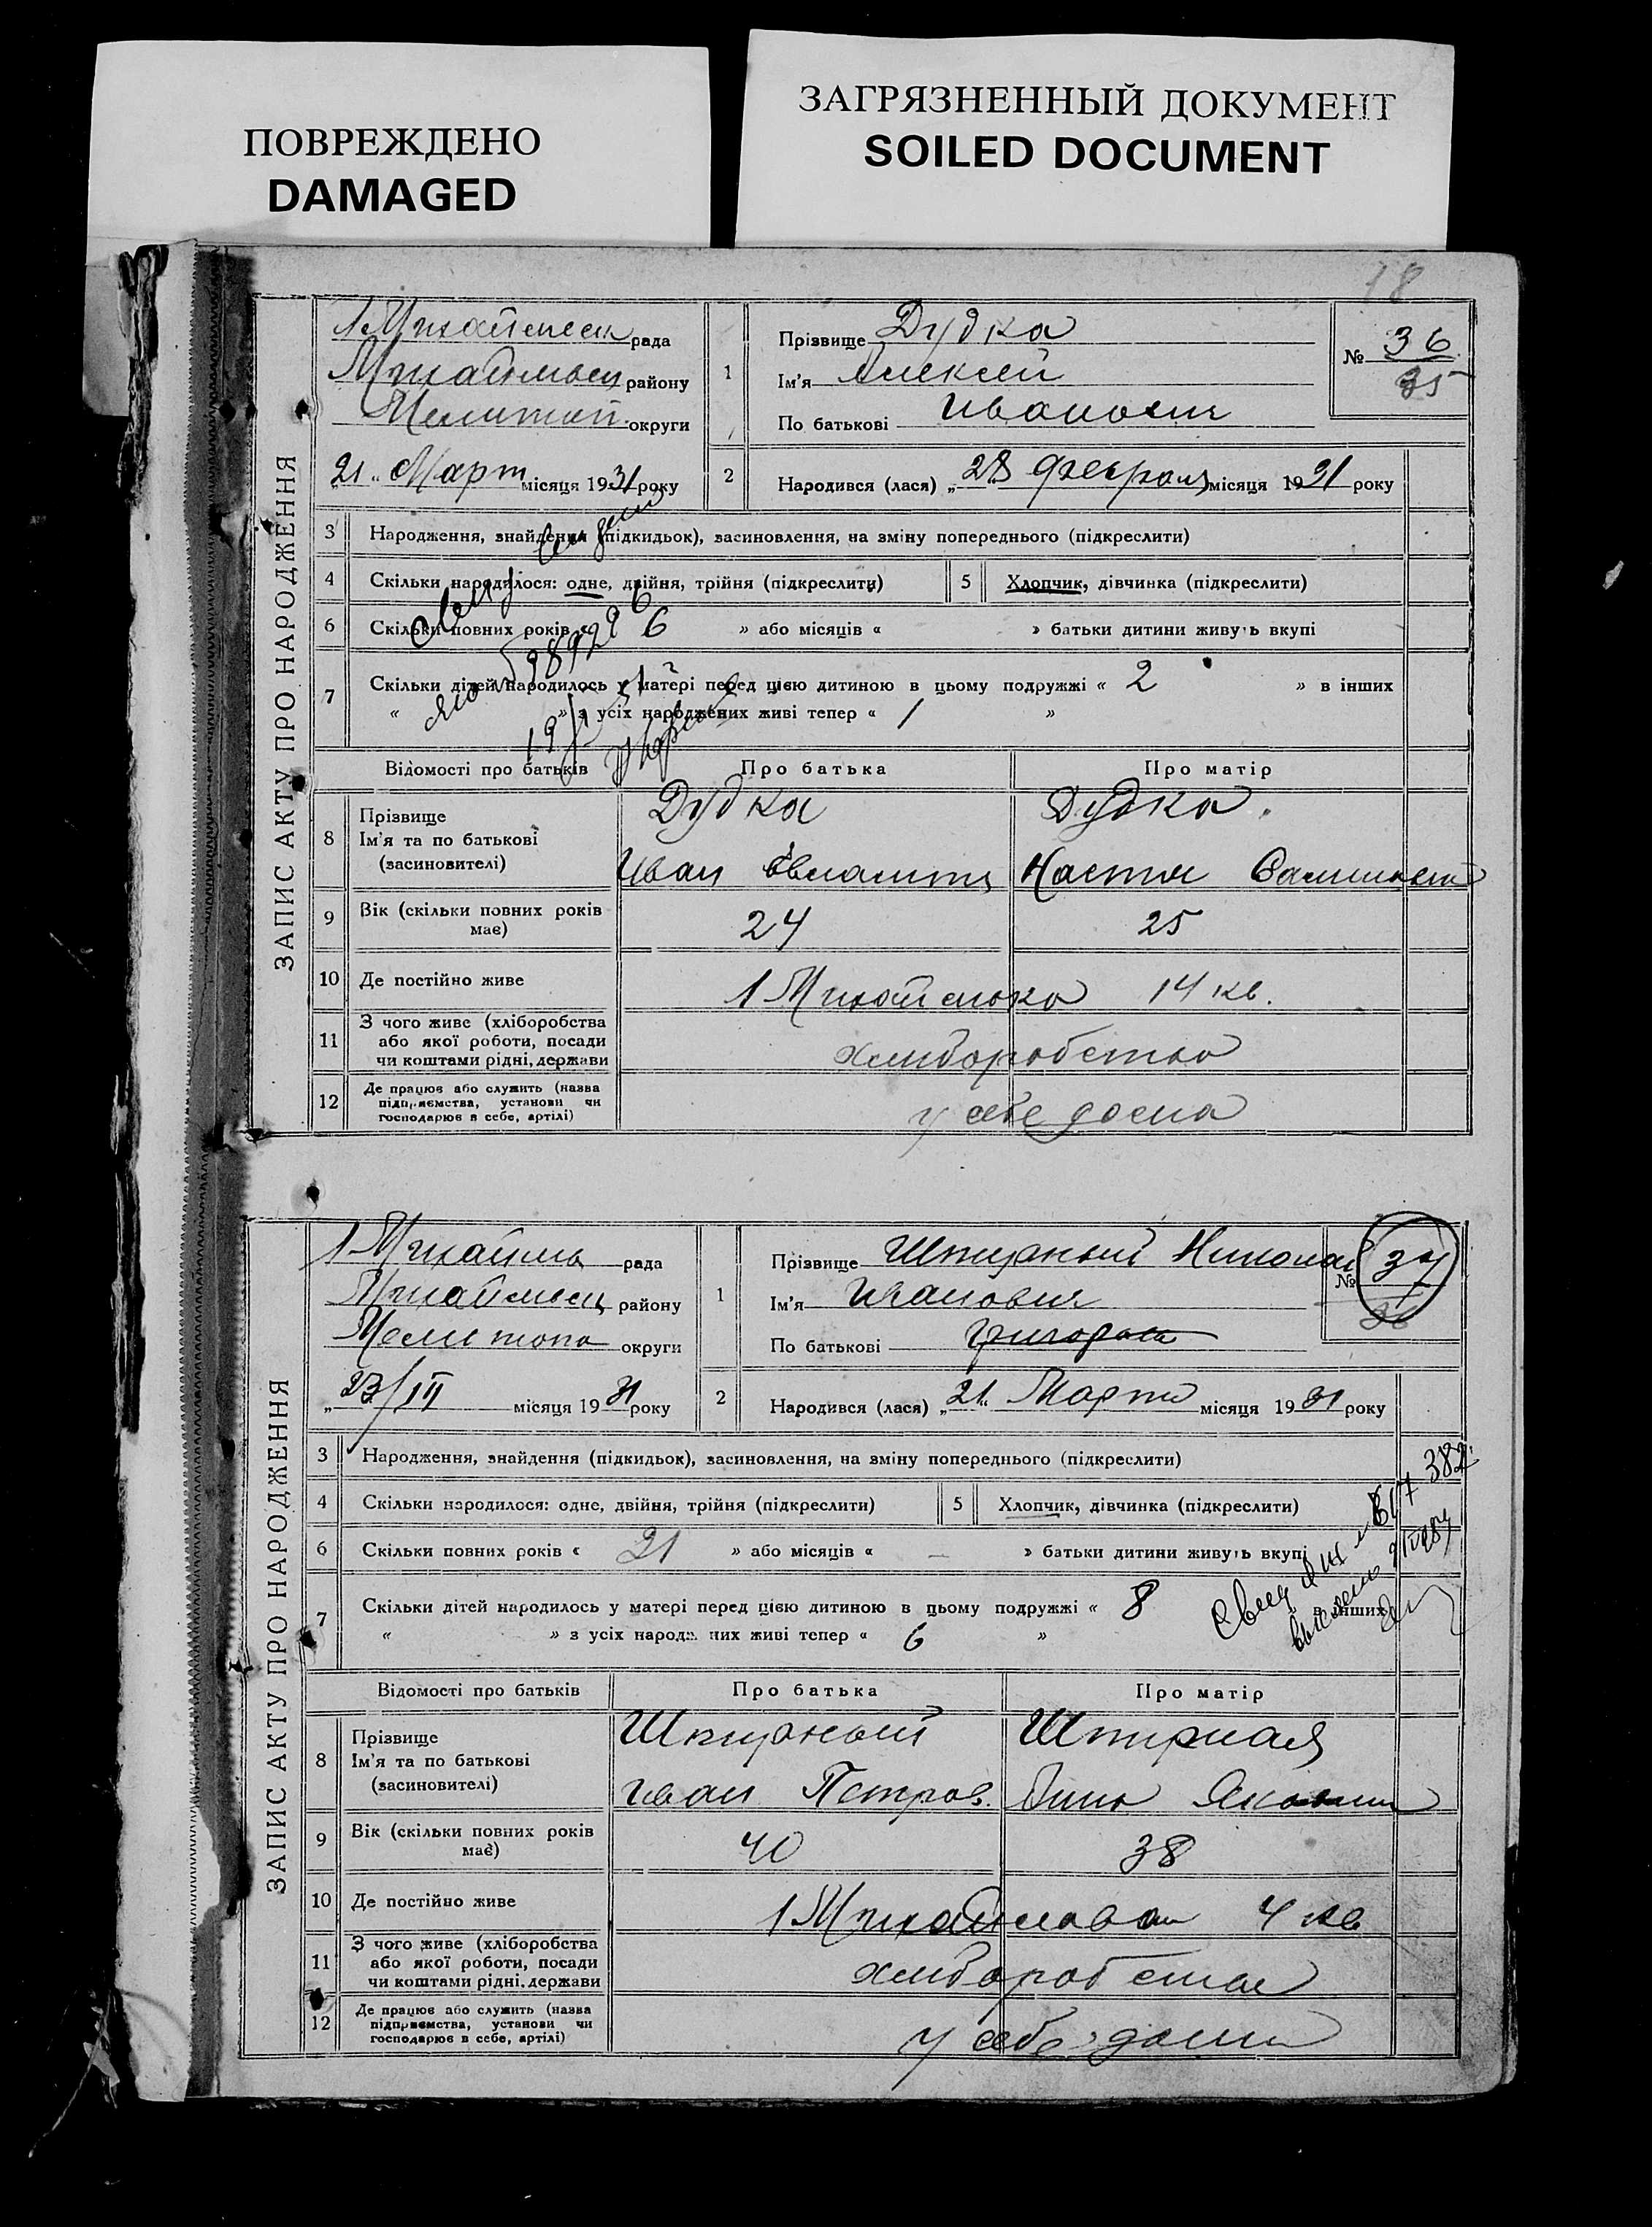 ПОВРЕЖДЕНО
DAMAGED
ЗАГРЯЗНЕННЫЙ ДОКУМЕНТ
SOILED DOCUMENT
18
ЗАПИС АКТУ ПРО НАРОДЖЕННЯ
рада
району
округи
„21“ Март місяця 1931 року
1 Прізвище Дудка
Ім'я Алексей
По батькові
№ 36
35
2 Народився (лася) „28“ Февраля місяця 1931 року
3 Народження, знайдення (підкидьок), засиновлення, на зміну попереднього (підкреслити)
4 Скільки народилося: одне, двійня, трійня (підкреслити) 5 Хлопчик, дівчинка (підкреслити)
6 Скільки повних років « 6 » або місяців « » батьки дитини живуть вкупі
7 Скільки дітей народилось у матері перед цією дитиною в цьому подружжі « 2 » в інших
« » з усіх народжених живі тепер « 1 »
Відомості про батьків Про батька Про матір
8 Прізвище Дудка Дудка
Ім'я та по батькові
(засиновителі) Иван Настя
9 Вік (скільки повних років має) 24 25
10 Де постійно живе 1 14 кв.
11 З чого живе (хліборобства
або якої роботи, посади
чи коштами рідні, держави хлиборобство
12 Де працює або служить (назва
підприємства, установи чи
господарює в себе, артілі) у себе дома
ЗАПИС АКТУ ПРО НАРОДЖЕННЯ
рада
району
округи
„23/III місяця 1931 року
1 Прізвище Шпирный Николай
Ім'я Иванович
По батькові
№ 37
36
2 Народився (лася) „21“ Марта місяця 1931 року
3 Народження, знайдення (підкидьок), засиновлення, на зміну попереднього (підкреслити)
4 Скільки народилося: одне, двійня, трійня (підкреслити) 5 Хлопчик, дівчинка (підкреслити)
6 Скільки повних років « 21 » або місяців « — » батьки дитини живуть вкупі
7 Скільки дітей народилось у матері перед цією дитиною в цьому подружжі « 8 » в інших
« » з усіх народж них живі тепер « 6 »
Відомості про батьків Про батька Про матір
8 Прізвище Шпирный Шпирная
Ім'я та по батькові
(засиновителі) Иван Петров.
9 Вік (скільки повних років має) 40 38
10 Де постійно живе 1 4 кв
11 З чого живе (хліборобства
або якої роботи, посади
чи коштами рідні, держави
12 Де працює або служить (назва
підприємства, установи чи
господарює в себе, артілі) у себе